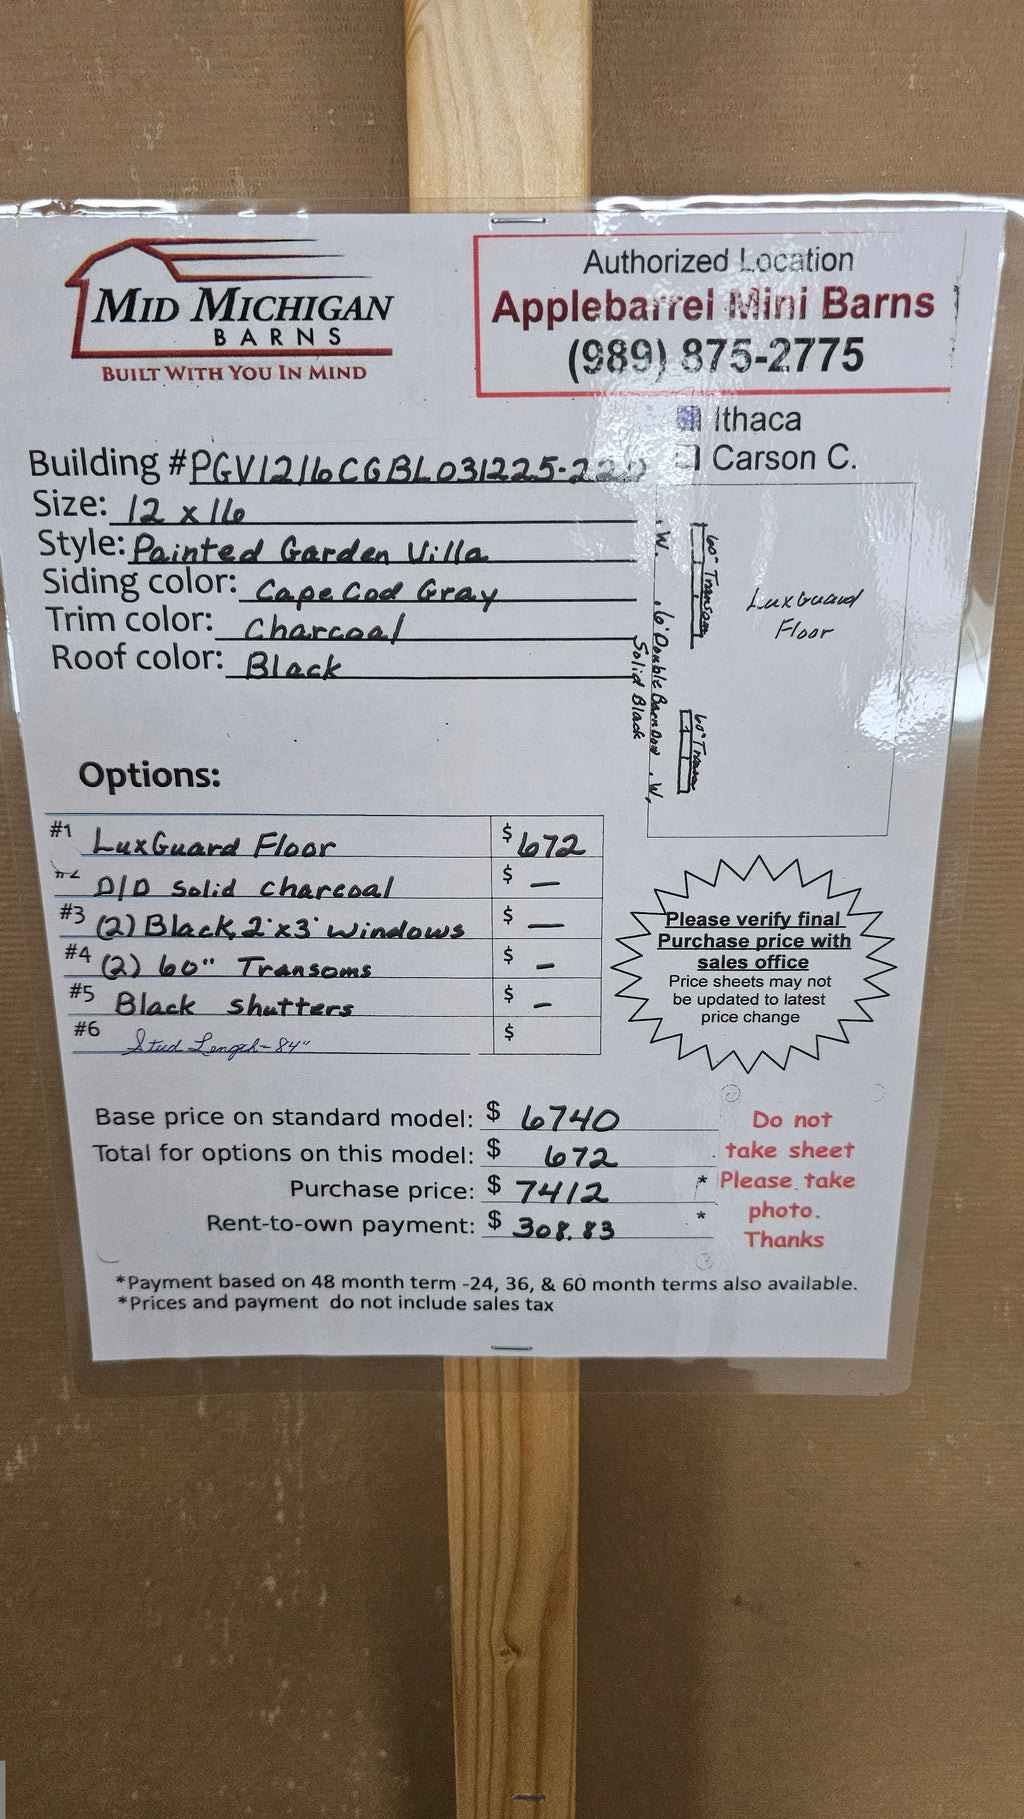 MID MICHIGAN
BARNS
BUILT WITH YOU IN MIND
Authorized Location
Applebarrel Mini Barns
(989) 875-2775
Ithaca
Carson C.
Building #PGV1216CGBL031225-220
Size: 12 x 16
Style: Painted Garden Villa
Siding color: Cape Cod Gray
Trim color: Charcoal
Roof color: Black
W.
6' Double Barn Door
W.
Solid Black
60" Transom
60" Transom
LuxGuard
Floor
Options:
#1 LuxGuard Floor $ 672
#2 D/D solid charcoal $ —
#3 (2) Black, 2'x3' windows $ —
#4 (2) 60" Transoms $ —
#5 Black shutters $ —
#6 Stud Length-84" $
Please verify final
Purchase price with
sales office
Price sheets may not
be updated to latest
price change
Base price on standard model: $ 6740
Total for options on this model: $ 672
Purchase price: $ 7412 *
Rent-to-own payment: $ 308.83 *
Do not
take sheet
Please take
photo.
Thanks
*Payment based on 48 month term -24, 36, & 60 month terms also available.
*Prices and payment do not include sales tax